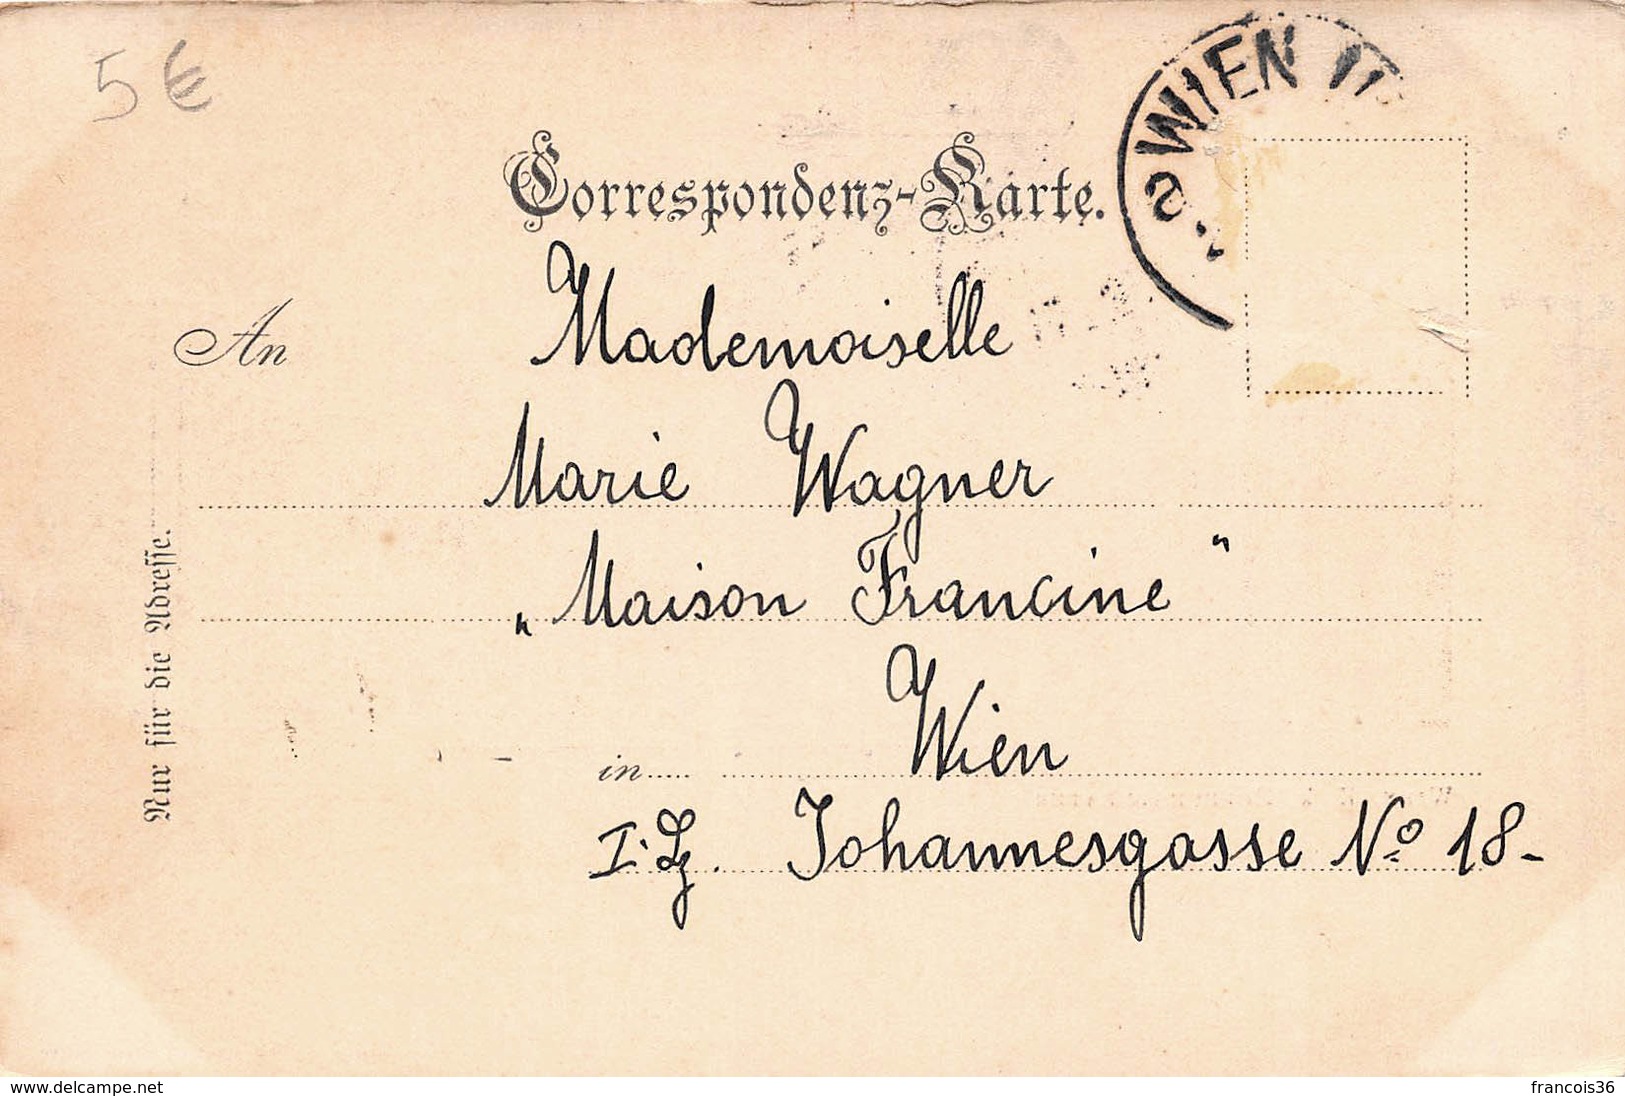 5 €
WIEN
Correspondenz-Karte.
An
Mademoiselle
Marie Wagner
„Maison Francine"
in Wien
I. Johannesgasse Nº 18-
Nur für die Adresse.
www.delcampe.net
francois36